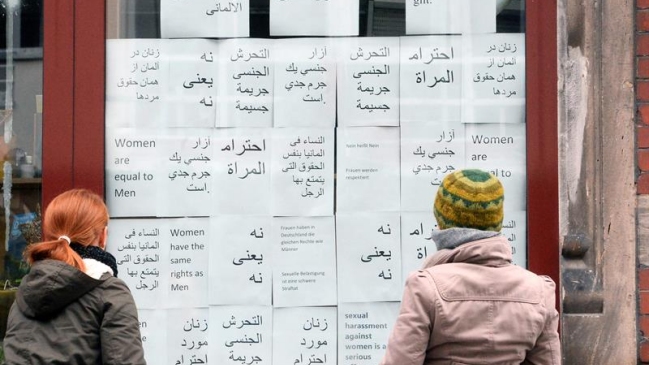 الالماني
زنان در
آلمان از
همان حقوق
مردها
نه
يعنى
نه
التحرش
الجنسى
جريمة
جسيمة
آزار
جنسي يك
جرم جدي
است.
التحرش
الجنسى
جريمة
جسيمة.
احترام
المراة
زنان در
آلمان از
همان
حقوق
Women
are
equal to
Men
آزار
جنسي يك
جرم جدي
است.
احترام
المراة
النساء
فى المانيا
بنفس
الحقوق التى
يتمتع بها
الرجل
Nein heißt Nein
Frauen werden
respektiert
آزار
جنسي يك
جرم جدي
است.
Women
are
equal to
النساء
فى المانيا
بنفس
الحقوق
يتمتع
Women
have the
same
rights as
Men
نه
يعنى
نه
Frauen haben in
Deutschland die
gleichen Rechte wie
Männer
Sexuelle Belästigung
ist eine schwere
Straftat
نه
يعنى
نه
زنان
مورد
التحرش
الجنسى
جريمة
زنان
مورد
احترام
sexual
harassment
against
women is a
serious